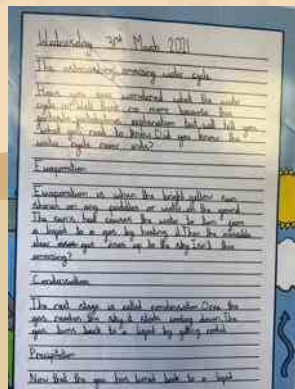 Wednesday 3rd March 2021
The astoundingly amazing water cycle
Have you ever wondered what the water
cycle is? Well think no more because this
explanation text will tell you
what you need to know. Did you know the
water cycle never ends?
Evaporation
Evaporation is when the bright yellow sun
shines on any puddles or water on the ground.
The sun's heat causes the water to turn from
a liquid to a gas by heating it. Then the invisible
clear gas rises up to the sky. Isn't this
amazing?
Condensation
The next stage is called condensation. Once the
gas reaches the sky it starts cooling down. The
gas turns back to a liquid by getting cooled.
Precipitation
Now that the gas has turned back to a liquid